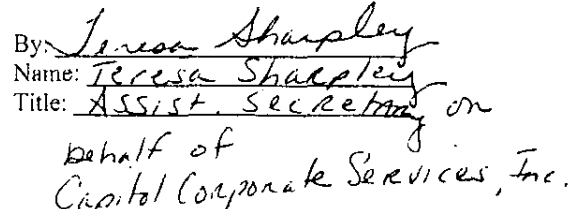 By: Teresa Sharpley
Name: Teresa Sharpley
Title: Assist. Secretary on
behalf of
Capitol Corporate Services, Inc.